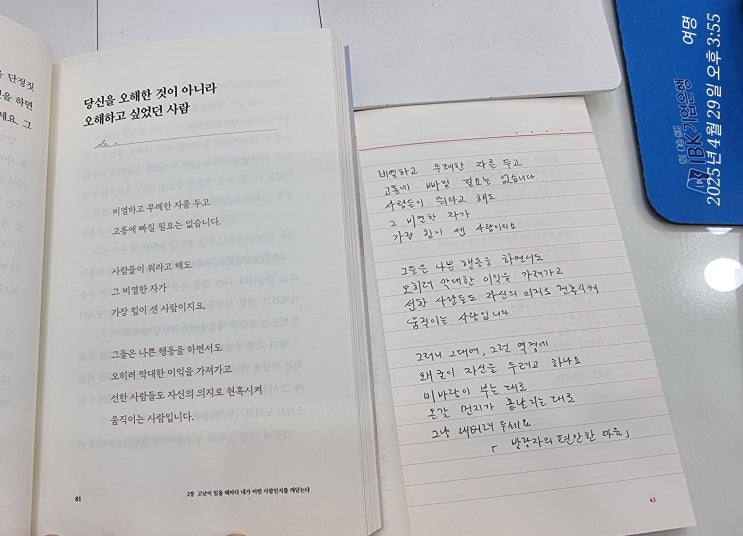 단정짓
을 하면
세요. 그
당신을 오해한 것이 아니라
오해하고 싶었던 사람
비열하고 무례한 자를 두고
고통에 빠질 필요는 없습니다.
사람들이 뭐라고 해도
그 비열한 자가
가장 힘이 센 사람이지요.
그들은 나쁜 행동을 하면서도
오히려 막대한 이익을 가져가고
선한 사람들도 자신의 의지로 현혹시켜
움직이는 사람입니다.
81
2장 고난이 있을 때마다 내가 어떤 사람인지를 깨닫는다
비열하고 무례한 자를 두고
고통에 빠질 필요는 없습니다.
사람들이 뭐라고 해도
그 비열한 자가
가장 힘이 센 사람이지요
그들은 나쁜 행동을 하면서도
오히려 막대한 이익을 가져가고
선한 사람들도 자신의 의지로 현혹시켜
움직이는 사람입니다
그러니 그대여, 그런 역경에
왜 굳이 자신을 두려고 하나요
비바람이 부는 대로
온갖 먼지가 흩날리는 대로
그냥 내버려 두세요
「 방랑자의 편안한 마음 」
43
IBK기업은행
여명
2025년 4월 29일 오후 3:55